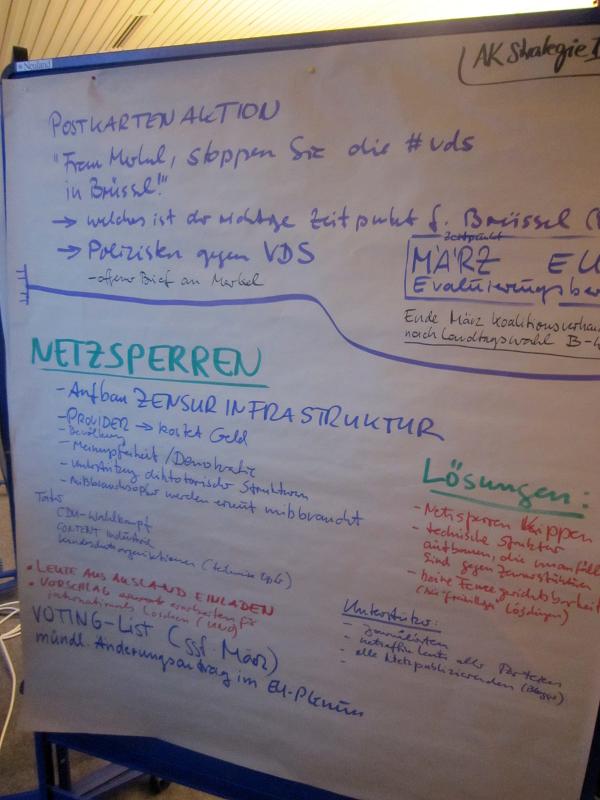 Neuland
AK Strategie I
POSTKARTENAKTION
"Frau Merkel, stoppen Sie die #vds
in Brüssel!"
→ welches ist der richtige Zeitpunkt f. Brüssel
→ Polizisten gegen VDS
- offener Brief an Merkel
Zeitpunkt
MÄRZ EU
Evaluierungsber
Ende März Koalitionsverhan
nach Landtagswahl B-W
NETZSPERREN
- Aufbau ZENSURINFRASTRUKTUR
- PROVIDER → kostet Geld
- Bevölkerung
- Meinungsfreiheit / Demokratie
- Unterstützung diktatorischer Strukturen
- Mißbrauchsopfer werden erneut mißbraucht
Täter
CDU-Wahlkampf
CONTENT Industrie
Kinderschutzorganisationen
• LEUTE AUS AUSLAND EINLADEN
• VORSCHLAG erarbeiten für
internationale Löschen (UNO)
VOTING-List (ggf. März)
mündl. Änderungsantrag im EU-Plenum
Lösungen:
- Netzsperren kippen
- technische Struktur
aufbauen, die unanfäll
sind gegen Zensurstrukturen
- keine Ferngerichtsbarkeit
Unterstützer:
- Journalisten
- Netzaffine Leute aller Parteien
- alle Netzpublizierenden (Blogger)